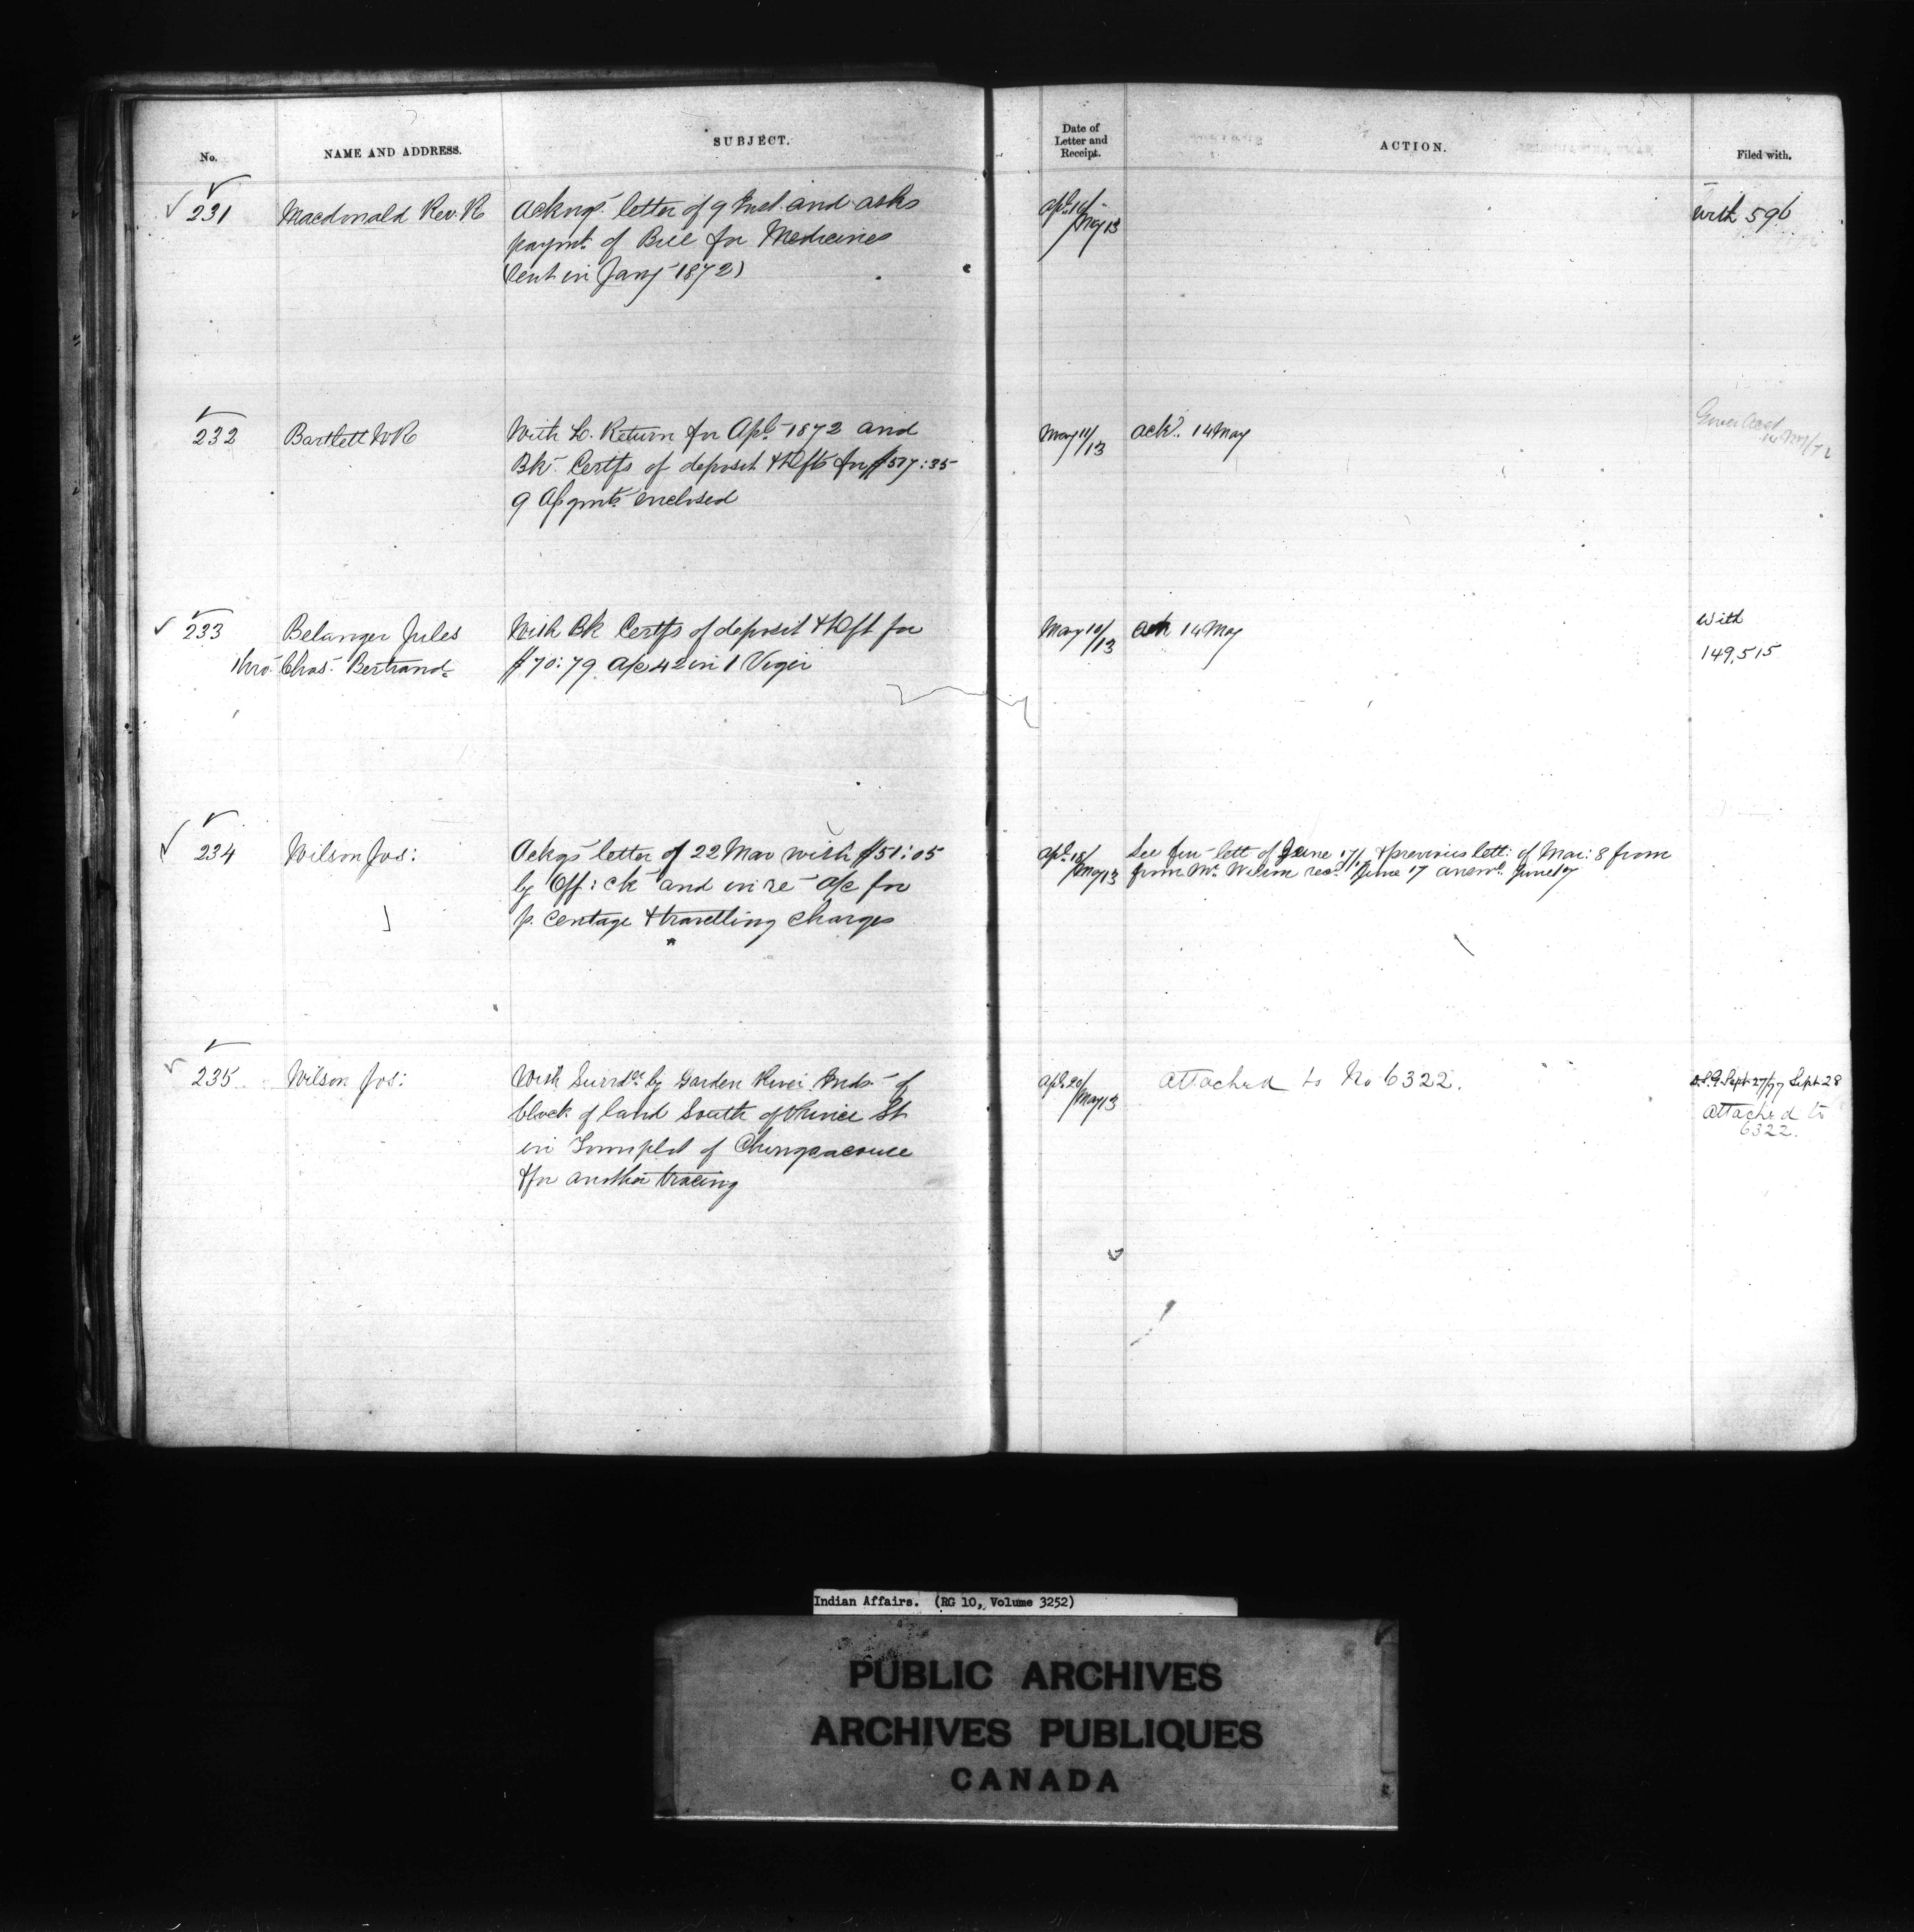 No.
NAME AND ADDRESS.
SUBJECT.
Date of
Letter and
Receipt.
ACTION.
Filed with.
231
Macdonald Rev. R
Ackngs letter of 9 Inst. and asks
paymt. of Bill for Medicines
(sent in Jany 1872)
May 13
with 596
232
Bartlett W R
With L. Return for Apl. 1872 and
Bk. Certfs of deposit & Dfts for $517:35
9 Asgmts. enclosed
May 11/13
ack. 14 May
233
Belanger Jules
thro. Chas. Bertrand
With Bk Certfs of deposit & Dft for
$70:79 a/c 42 in 1 Viger
May 10/13
ack 14 May
With
149,515
234
Wilson Jos:
Ackgs letter of 22 Mar with $51:05
by Off: ck and in re a/c for
p. centage & travelling charges
Apl. 18/May 13
See fur lett of June 17/72 & previous lett: of Mar: 8 from
from Mr. Wilson recd. June 17 answd. June 19
235
Wilson Jos:
With Surrdr. by Garden River Inds of
block of land South of Prince St
in Townplot of Shingacouse
& for another tracing
Apl. 20/May 13
attached to No 6322.
D.S.G. Sept 27/77 Sept 28
attached to
6322.
Indian Affairs. (RG 10, Volume 3252)
PUBLIC ARCHIVES
ARCHIVES PUBLIQUES
CANADA